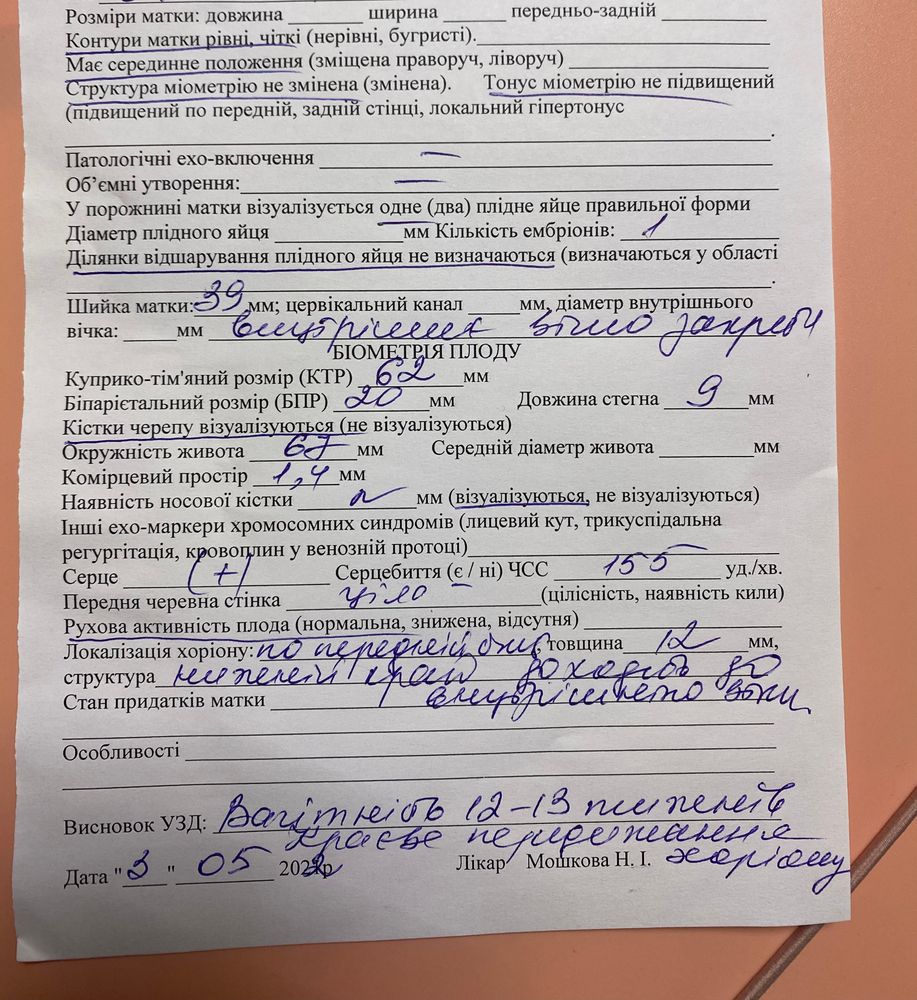 Розміри матки: довжина _______ ширина ______ передньо-задній __________
Контури матки рівні, чіткі (нерівні, бугристі).
Має серединне положення (зміщена праворуч, ліворуч)
Структура міометрію не змінена (змінена). Тонус міометрію не підвищений
(підвищений по передній, задній стінці, локальний гіпертонус
.
Патологічні ехо-включення —
Об’ємні утворення: —
У порожнині матки візуалізується одне (два) плідне яйце правильної форми
Діаметр плідного яйця ____________мм Кількість ембріонів: 1
Ділянки відшарування плідного яйця не визначаються (визначаються у області
.
Шийка матки: 39 мм; цервікальний канал _____мм, діаметр внутрішнього
вічка: _____мм внутрішнє вічко закрите
БІОМЕТРІЯ ПЛОДУ
Куприко-тім'яний розмір (КТР) 62 мм
Біпарієтальний розмір (БПР) 20 мм Довжина стегна 9 мм
Кістки черепу візуалізуються (не візуалізуються)
Окружність живота 67 мм Середній діаметр живота _________ мм
Комірцевий простір 1,4 мм
Наявність носової кістки мм (візуалізуються, не візуалізуються)
Інші ехо-маркери хромосомних синдромів (лицевий кут, трикуспідальна
регургітація, кровоплин у венозній протоці) —
Серце (+) Серцебиття (є / ні) ЧСС 155 уд./хв.
Передня черевна стінка ціла (цілісність, наявність кили)
Рухова активність плода (нормальна, знижена, відсутня)
Локалізація хоріону: по передній товщина 12 мм,
структура нижній край доходить до
Стан придатків матки внутрішнього вічка
Особливості
Висновок УЗД: Вагітність 12-13 тижнів
Крайове передлежання
Дата "3" 05 2022р Лікар Мошкова Н. І. хоріону